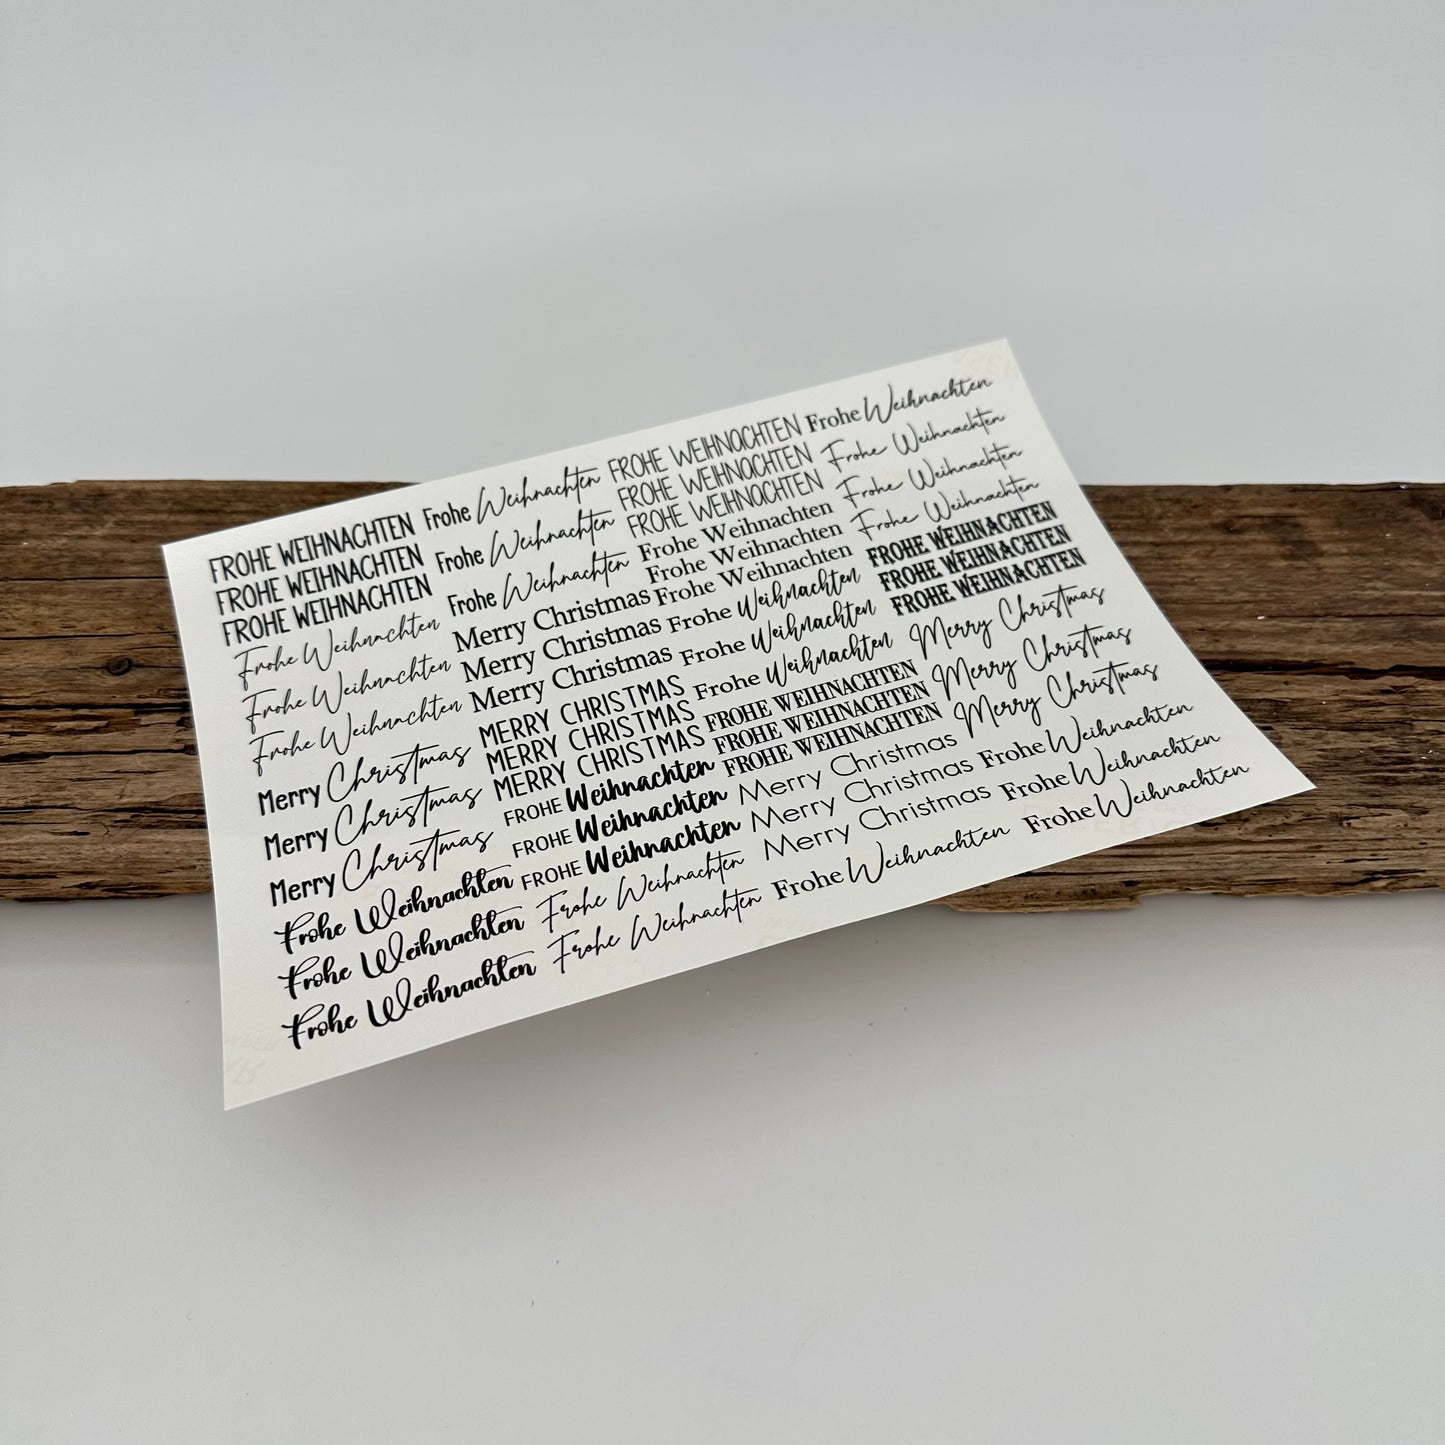 FROHE WEIHNACHTEN
FROHE WEIHNACHTEN
FROHE WEIHNACHTEN
Frohe Weihnachten
Frohe Weihnachten
Frohe Weihnachten
Merry Christmas
Merry Christmas
Merry Christmas
Frohe Weihnachten
Frohe Weihnachten
Frohe Weihnachten
Frohe Weihnachten
Frohe Weihnachten
Frohe Weihnachten
Merry Christmas
Merry Christmas
Merry Christmas
MERRY CHRISTMAS
MERRY CHRISTMAS
MERRY CHRISTMAS
FROHE Weihnachten
FROHE Weihnachten
FROHE Weihnachten
Frohe Weihnachten
Frohe Weihnachten
FROHE WEIHNACHTEN
FROHE WEIHNACHTEN
FROHE WEIHNACHTEN
Frohe Weihnachten
Frohe Weihnachten
Frohe Weihnachten
Frohe Weihnachten
Frohe Weihnachten
Frohe Weihnachten
FROHE WEIHNACHTEN
FROHE WEIHNACHTEN
FROHE WEIHNACHTEN
Merry Christmas
Merry Christmas
Merry Christmas
Frohe Weihnachten
Frohe Weihnachten
Frohe Weihnachten
Frohe Weihnachten
Frohe Weihnachten
FROHE WEIHNACHTEN
FROHE WEIHNACHTEN
FROHE WEIHNACHTEN
Merry Christmas
Merry Christmas
Merry Christmas
Frohe Weihnachten
Frohe Weihnachten
Frohe Weihnachten